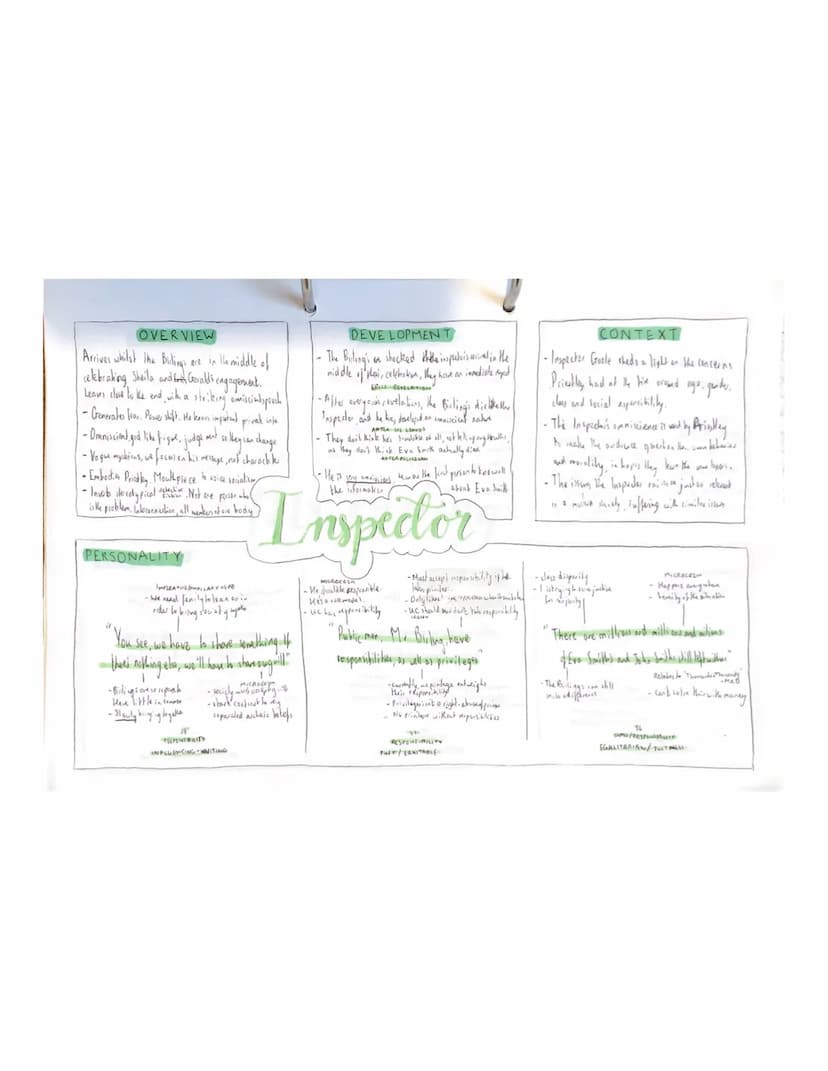 OVERVIEW
Arrives whilst the Birlings are in the middle of
celebrating Sheila and Gerald's engagement.
Leaves close to the end, with a striking omniscient speech
- Generates fear. Power shift. He knows important private info
- Omniscient, god like figure, judgement so they can change
- Vague mysterious, we focus on his message, not character
- Embodies Priestley. Mouthpiece to voice socialism
- stereotypical Not one person who
is the problem. all members of one body
DEVELOPMENT
- The Birlings are shocked inspector's arrival in the
middle of their celebration, they have an immediate
- After everyone's revelations, the Birlings dislike the
Inspector, and he has developed an omniscient nature
- They don't think he's at all, not believing
as they don't think Eva Smith actually died
- He is very omniscient was the first person to know all
the information about Eva Smith
CONTEXT
- Inspector Goole sheds a light on the concerns
Priestley had at the time around age, gender,
class and social responsibility.
- The Inspector's omniscience is used by Priestley
to make the audience question their own behaviour
and morality, in hopes they learn their own lessons.
- The issues the Inspector raises are just as relevant
in a modern society, suffering with similar issues
Inspector
PERSONALITY
- We need family to lean on in
order to bring society together
"You see, we have to share something. If
there's nothing else, we'll have to share our guilt"
- Birlings are so separate
Have little in common
- Slowly bringing together
MICROCOSM
- society
- stark contrast to very
separated archaic beliefs
MICROCOSM
- He should be responsible
He's a role model
- UC has responsibility
- Must accept responsibility if he
takes privilege.
- UC should take responsibility
"Public men, Mr Birling, have
responsibilities, as well as privileges"
- Currently, his privilege outweighs
their responsibility
- Privilege isn't a right - abused power
- No privilege without responsibilities
RESPONSIBILITY
- class disparity
MICROCOSM
- Happens everywhere
- Severity of the situation
"There are millions and millions and millions
of Eva Smiths and John Smiths still left with us"
- The Birlings can still
make a difference
- Can't solve this with money